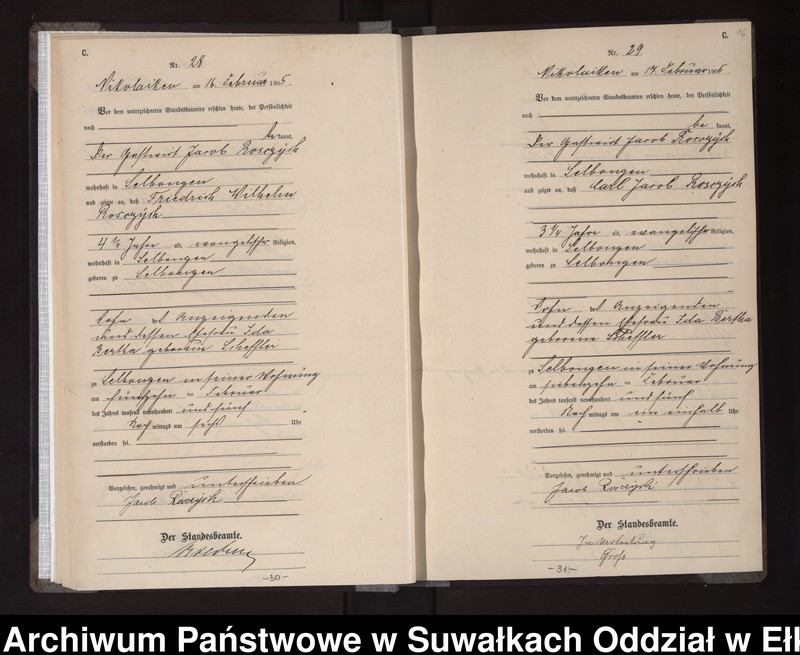 C.
Nr. 28
Nikolaiken am 16. Februar 1905.
Vor dem unterzeichneten Standesbeamten erschien heute, der Persönlichkeit
nach
be kannt,
Der Gastwirt Jacob Rosczych
wohnhaft in Selbongen
und zeigte an, daß Friedrich Wilhelm
Rosczych
4 1/2 Jahre alt, evangelischer Religion,
wohnhaft in Selbongen
geboren zu Selbongen
Sohn des Anzeigenden
und dessen Ehefrau Ida
Bertha geborene Scheffler
zu Selbongen in seiner Wohnung
am fünfzehn ten Februar
des Jahres tausend neunhundert und fünf
Nach mittags um sechs Uhr
verstorben sei.
Vorgelesen, genehmigt und unterschrieben
Jacob
Der Standesbeamte.
-30-
C. 16
Nr. 29
Nikolaiken am 17. Februar 1905.
Vor dem unterzeichneten Standesbeamten erschien heute, der Persönlichkeit
nach
be kannt,
Der Gastwirt Jacob Rosczych
wohnhaft in Selbongen
und zeigte an, daß Carl Jacob Rosczych
Jahre alt, evangelischer Religion,
wohnhaft in Selbongen
geboren zu Selbongen
Sohn des Anzeigenden
und dessen Ehefrau Ida Bertha
geborene Scheffler
zu Selbongen in seiner Wohnung
am siebzehn ten Februar
des Jahres tausend neunhundert und fünf
Nach mittags um ein einhalb Uhr
verstorben sei.
Vorgelesen, genehmigt und unterschrieben
Jacob
Der Standesbeamte.
In Vertretung
Groß
-31-
Archiwum Państwowe w Suwałkach Oddział w Ełk